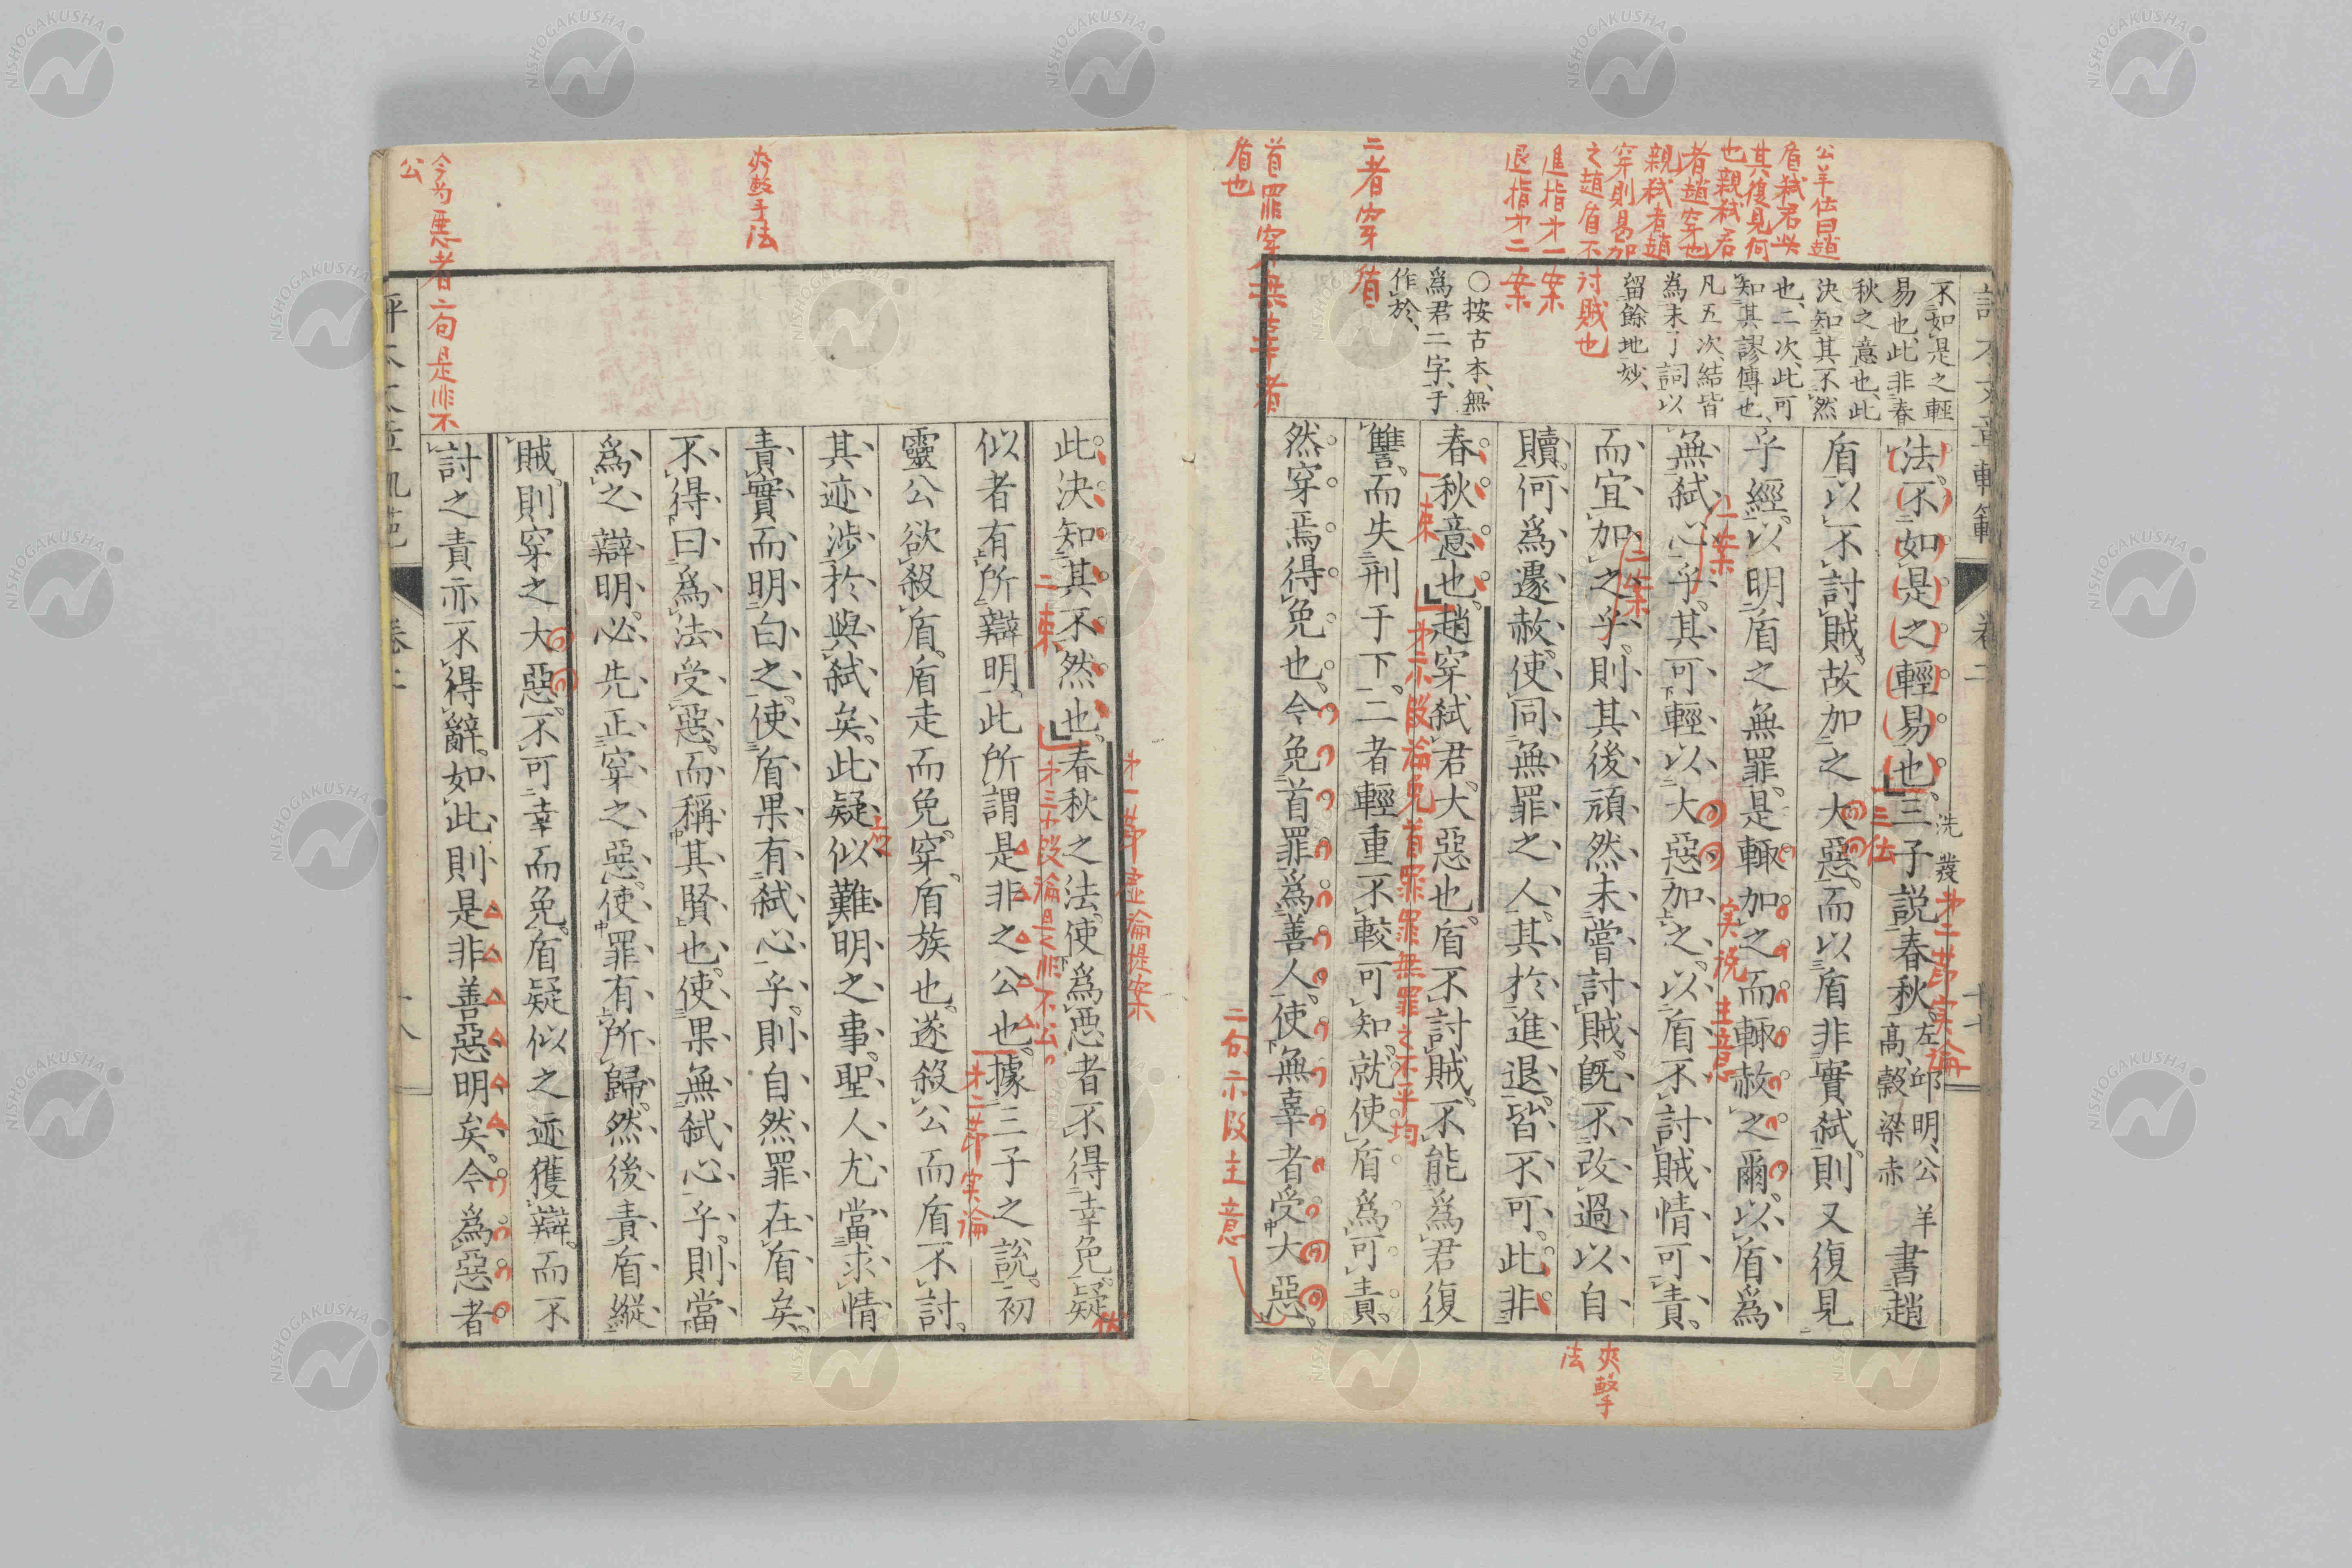 公羊伝曰趙
盾弑君此
其復見何
也親弑君
者趙穿也
親弑者趙
穿則曷加
之趙盾不討賊也
進指才一案
退指才二案
二者穿盾
首罪穿無辜者
盾也
不如是之輕
易也、此非春
秋之意也、此
決知其不然
也、二次、此可
知其謬傳也、
凡五次、結皆
為未了詞以
留餘地妙、
○按古本、無
爲君二字、于
作於、
法。不如是之輕易也。三子説春秋。左邱明、公羊高、穀梁赤書趙
洗發
才二節実論
三伝
盾以不討賊。故加之大惡。而以盾非實弑。則又復見
乎經。以明盾之無罪。是輙加之而輙赦之爾。以盾爲
実説主意
無弑心乎。其可輕以大惡加之。以盾不討賊情可責。
一案
而宜加之乎。則其後頑然未嘗討賊。既不改過以自
二案
贖。何爲遽赦。使同無罪之人。其於進退。皆不可。此非
春秋意也。趙穿弑君。大惡也。盾不討賊。不能爲君復
一束
才二小段論免首罪罪無罪之不平均
讐。而失刑于下。二者輕重。不較可知。就使盾爲可責。
然穿焉得免也。今免首罪爲善人。使無辜者受大惡。
二句示段主意
夾擊手
法
此決知其不然也。春秋之法。使爲惡者不得幸免。疑
才一節虚論提案
二束
才三小段論是非不公
似者有所辯明。此所謂是非之公也。據三子之說。初
才二節実論
靈公欲殺盾。盾走而免。穿。盾族也。遂殺公而盾不討。
其迹涉於與弑矣。此疑似難明之事。聖人尤當求情
責實而明白之。使盾果有弑心乎。則自然罪在盾矣。
不得曰爲法受惡。而稱其賢也。使果無弑心乎。則當
爲之辯明。必先正穿之惡。使罪有所歸。然後責盾縱
賊。則穿之大惡。不可幸而免。盾疑似之迹獲辯。而不
討之責亦不得辭。如此則是非善惡明矣。今爲惡者
夾擊手法
今为悪者二句是非不
公
NISHOGAKUSHA